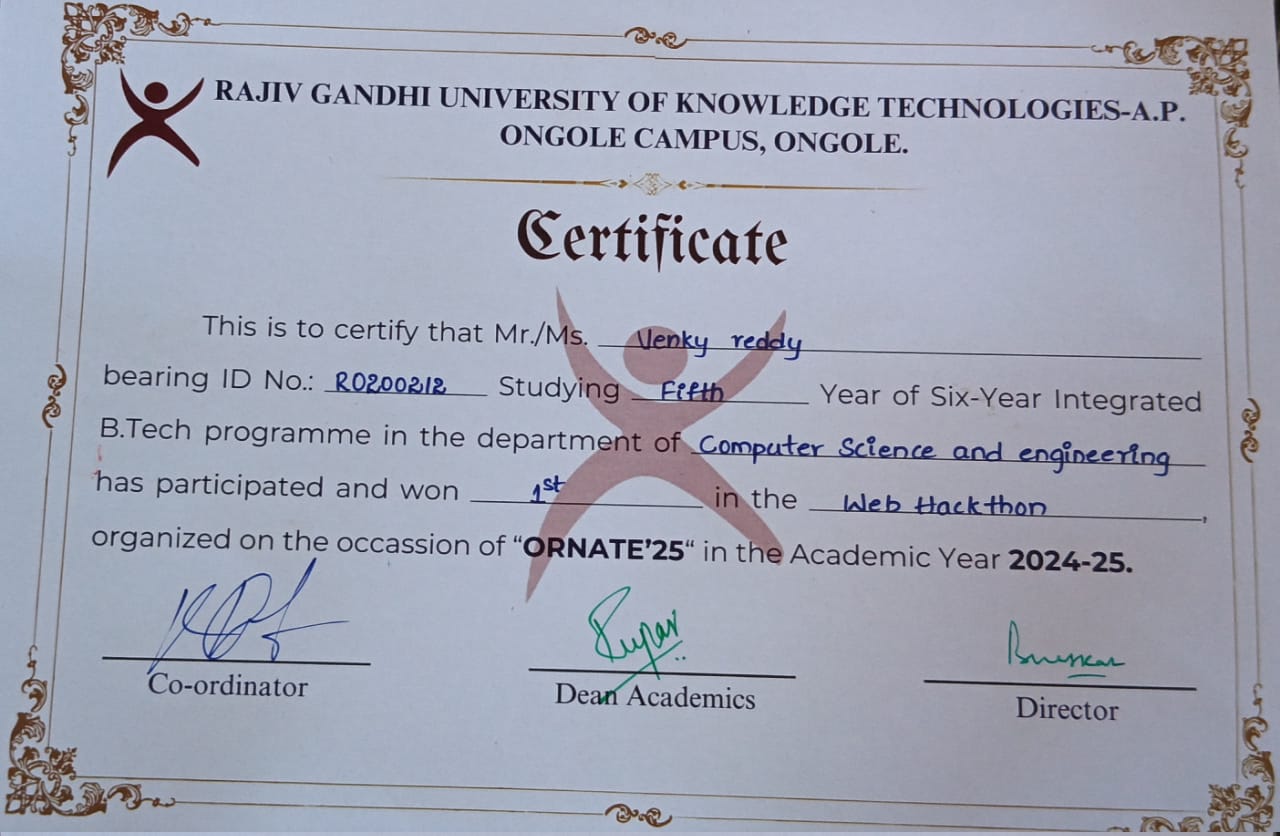 RAJIV GANDHI UNIVERSITY OF KNOWLEDGE TECHNOLOGIES-A.P.
ONGOLE CAMPUS, ONGOLE.
Certificate
This is to certify that Mr./Ms. Venky reddy
bearing ID No.: RO200212 Studying Fifth Year of Six-Year Integrated
B.Tech programme in the department of Computer Science and engineering
has participated and won 1st in the Web Hackthon,
organized on the occassion of “ORNATE’25“ in the Academic Year 2024-25.
Co-ordinator
Dean Academics
Director